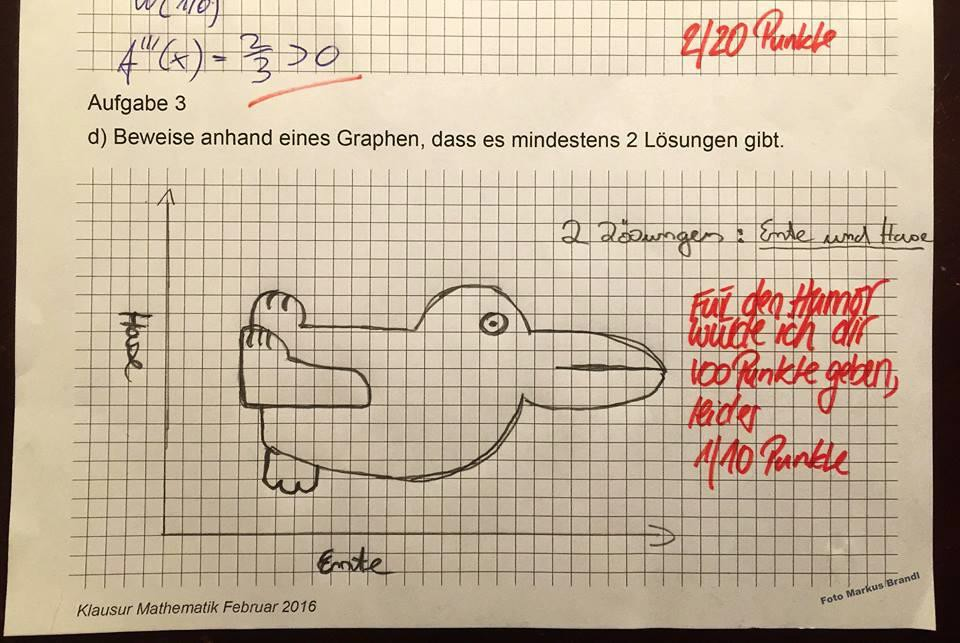 f'''(x) = 2/3 > 0
2/20 Punkte
Aufgabe 3
d) Beweise anhand eines Graphen, dass es mindestens 2 Lösungen gibt.
2 Lösungen: Ente und Hase
Hase
Für den Humor
würde ich dir
100 Punkte geben,
leider
1/10 Punkte
Ente
Klausur Mathematik Februar 2016
Foto Markus Brandl